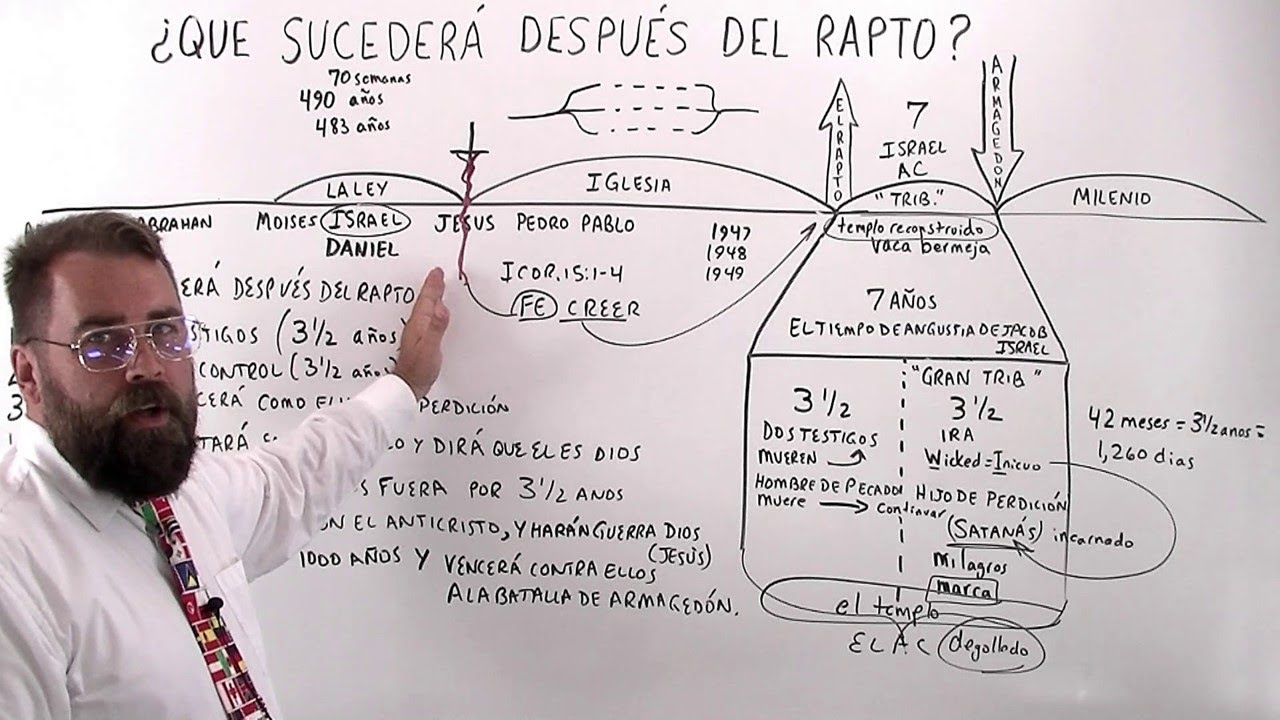 ¿QUE SUCEDERÁ DESPUÉS DEL RAPTO?
70 semanas
490 años
483 años
LA LEY
IGLESIA
EL RAPTO
7
ISRAEL
AC
"TRIB."
ARMAGEDON
MILENIO
MOISES ISRAEL JESUS PEDRO PABLO
DANIEL
1947
1948
1949
templo reconstruido
vaca bermeja
I COR. 15:1-4
FE CREER
DESPUÉS DEL RAPTO
(3 1/2 años)
CONTROL (3 1/2 años)
COMO PERDICIÓN
Y DIRÁ QUE EL ES DIOS
FUERA POR 3 1/2 ANOS
EL ANTICRISTO, Y HARÁN GUERRA DIOS
(JESÚS)
1000 AÑOS Y VENCERÁ CONTRA ELLOS
A LA BATALLA DE ARMAGEDÓN.
7 AÑOS
EL TIEMPO DE ANGUSTIA DE JACOB
ISRAEL
3 1/2
DOS TESTIGOS
MUEREN
HOMBRE DE PECADO
muere
continuar
"GRAN TRIB"
3 1/2
IRA
Wicked = Inicuo
HIJO DE PERDICIÓN
(SATANÁS) incarnado
milagros
marca
el templo
EL AC degollado
42 meses = 3 1/2 anos =
1,260 dias